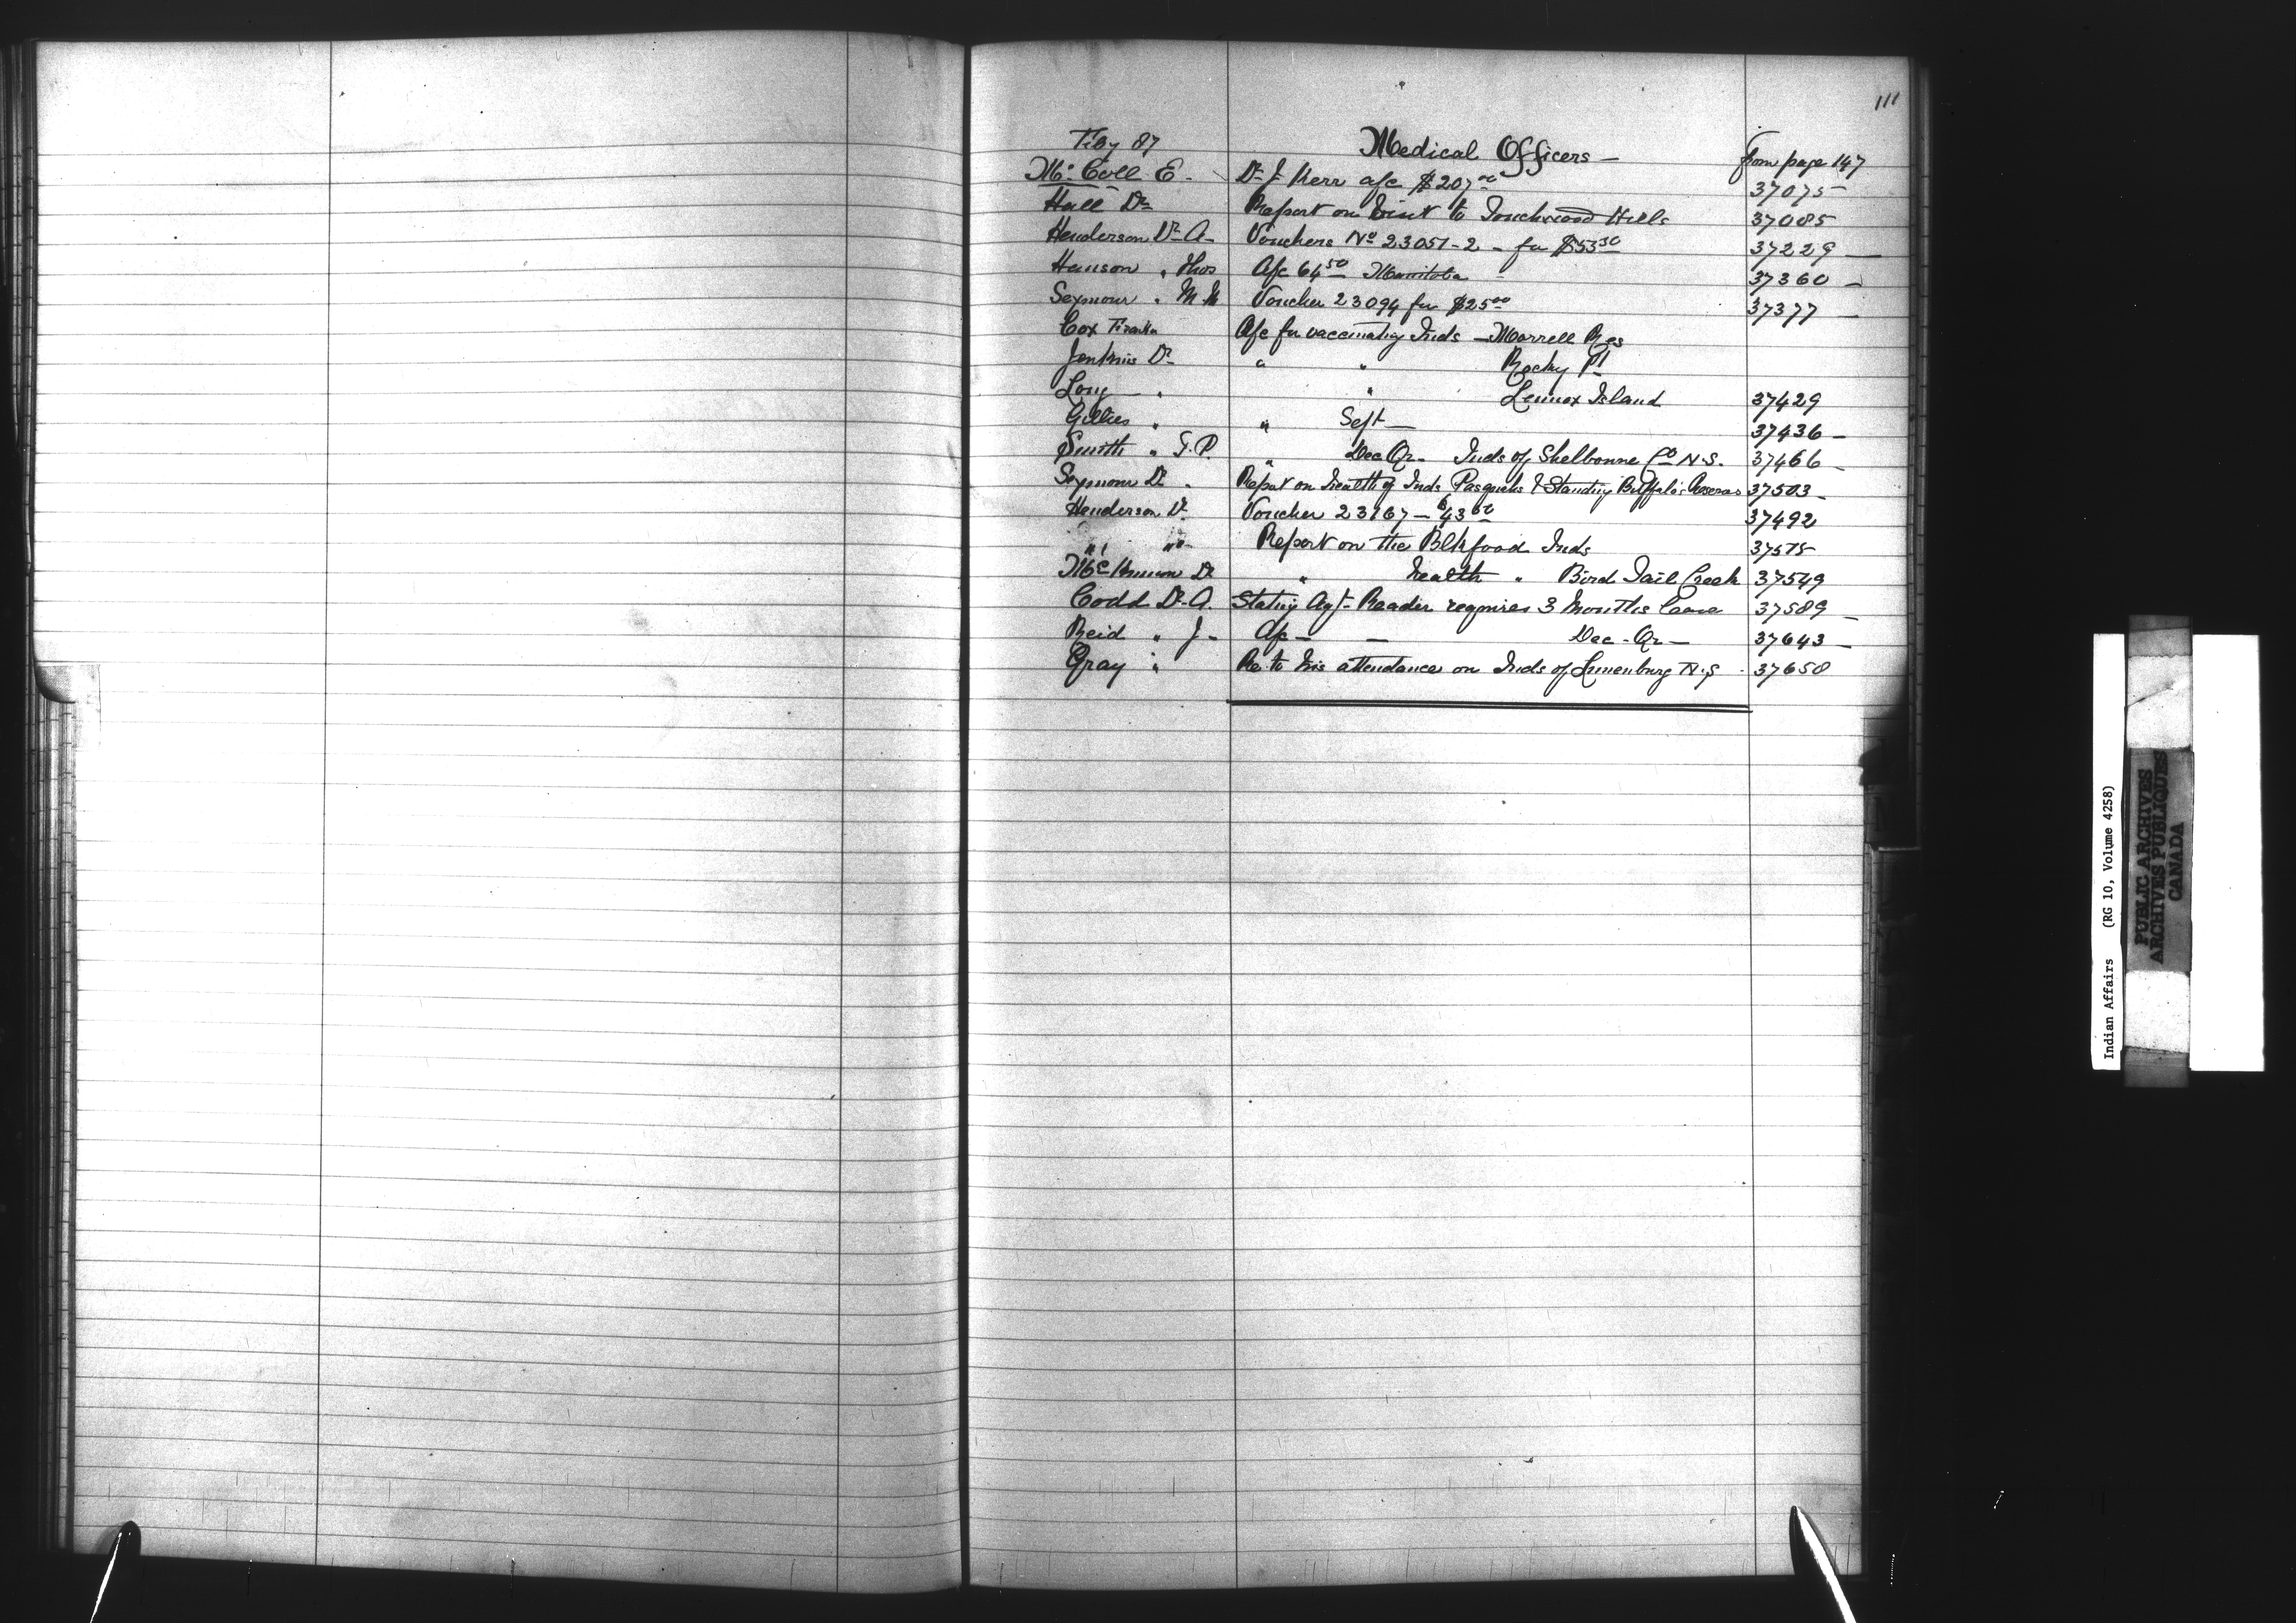 111
Feby 87 Medical Officers — from page 147
McColl E. Dr J Kerr a/c $207.00 37075
Hall Dr Report on Visit to Touchwood Hills 37085
Henderson Dr A Vouchers No 23051-2 - for $53.50 37229 —
Hanson " Thos A/c 64.50 Manitoba 37360 —
Seymour " M M Voucher 23094 for $25.00 37377 —
Cox A/c for vaccinating Inds — Morrell Res
Jenkins Dr " " Rocky Pt
Long " " Lennox Island 37429
Gillies " " Sept — 37436 —
Smith " G. P. " Dec Qr. Inds of Shelbonne Co N.S. 37466 —
Seymour Dr Report on health of Inds Pasquahs & Standing Buffalo 37503 —
Henderson Dr Voucher 23167 — $43.00 37492
" " Report on the Blkfood Inds 37575
McKinnon Dr " health " Bird Tail Creek 37549
Codd Dr A. Stating Agt Reader requires 3 Months leave 37589 —
Reid " J — A/c — — Dec. Qr — 37643 —
Gray " Re. to his attendance on Inds of Lunenburg N.S. 37650
Indian Affairs (RG 10, Volume 4258)
PUBLIC ARCHIVES
ARCHIVES PUBLIQUES
CANADA